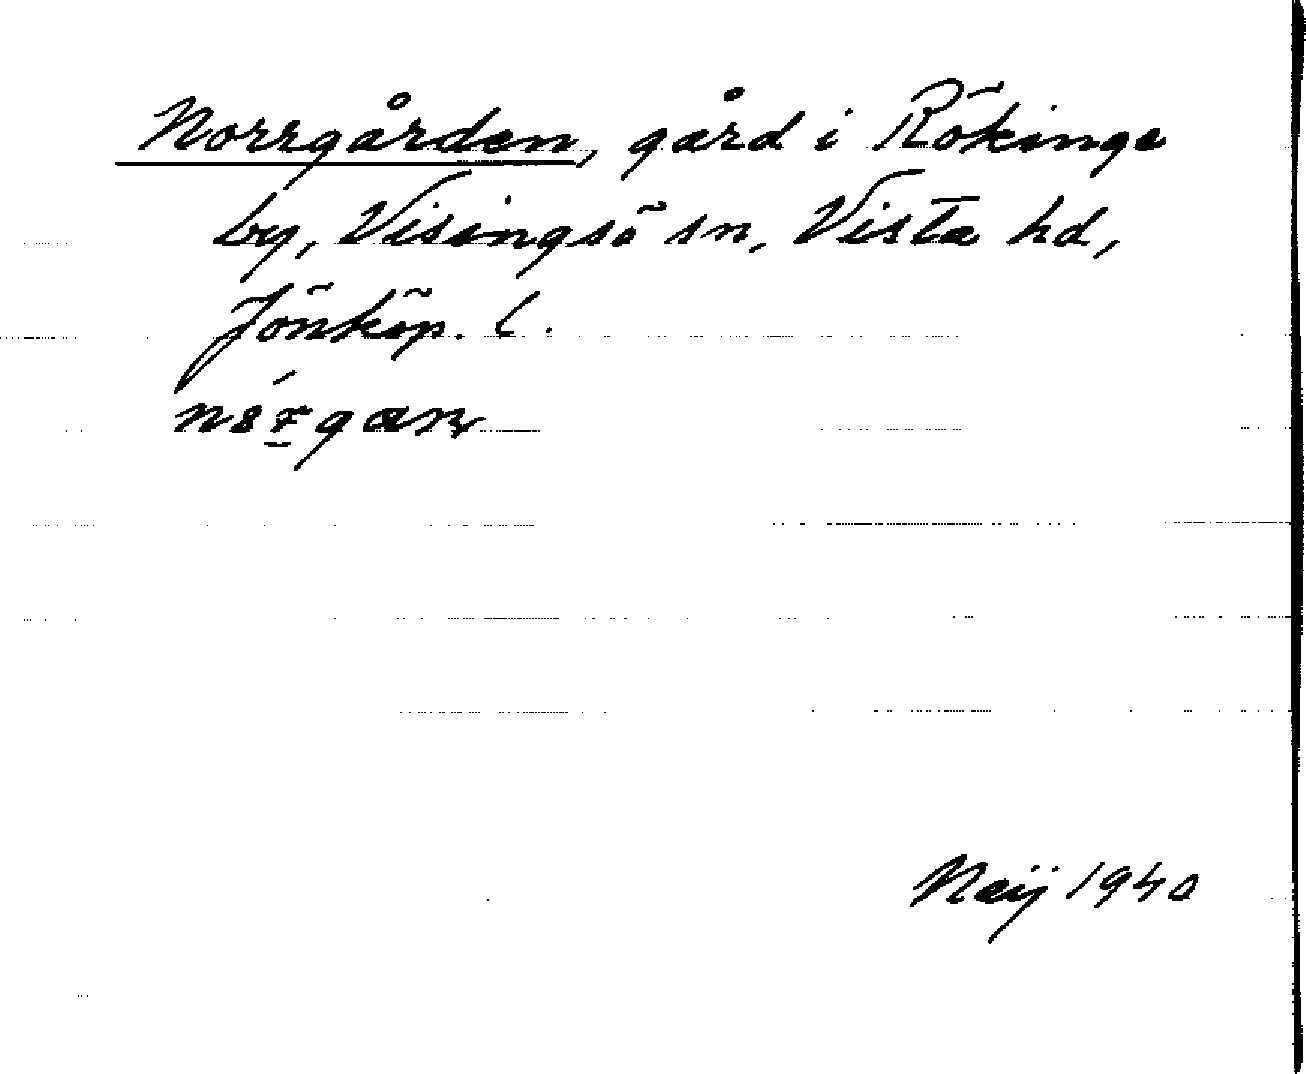 Norrgården, gård i Rökinge
by, Visingsö sn, Vista hd,
Jönköp. l.
Neij 1940